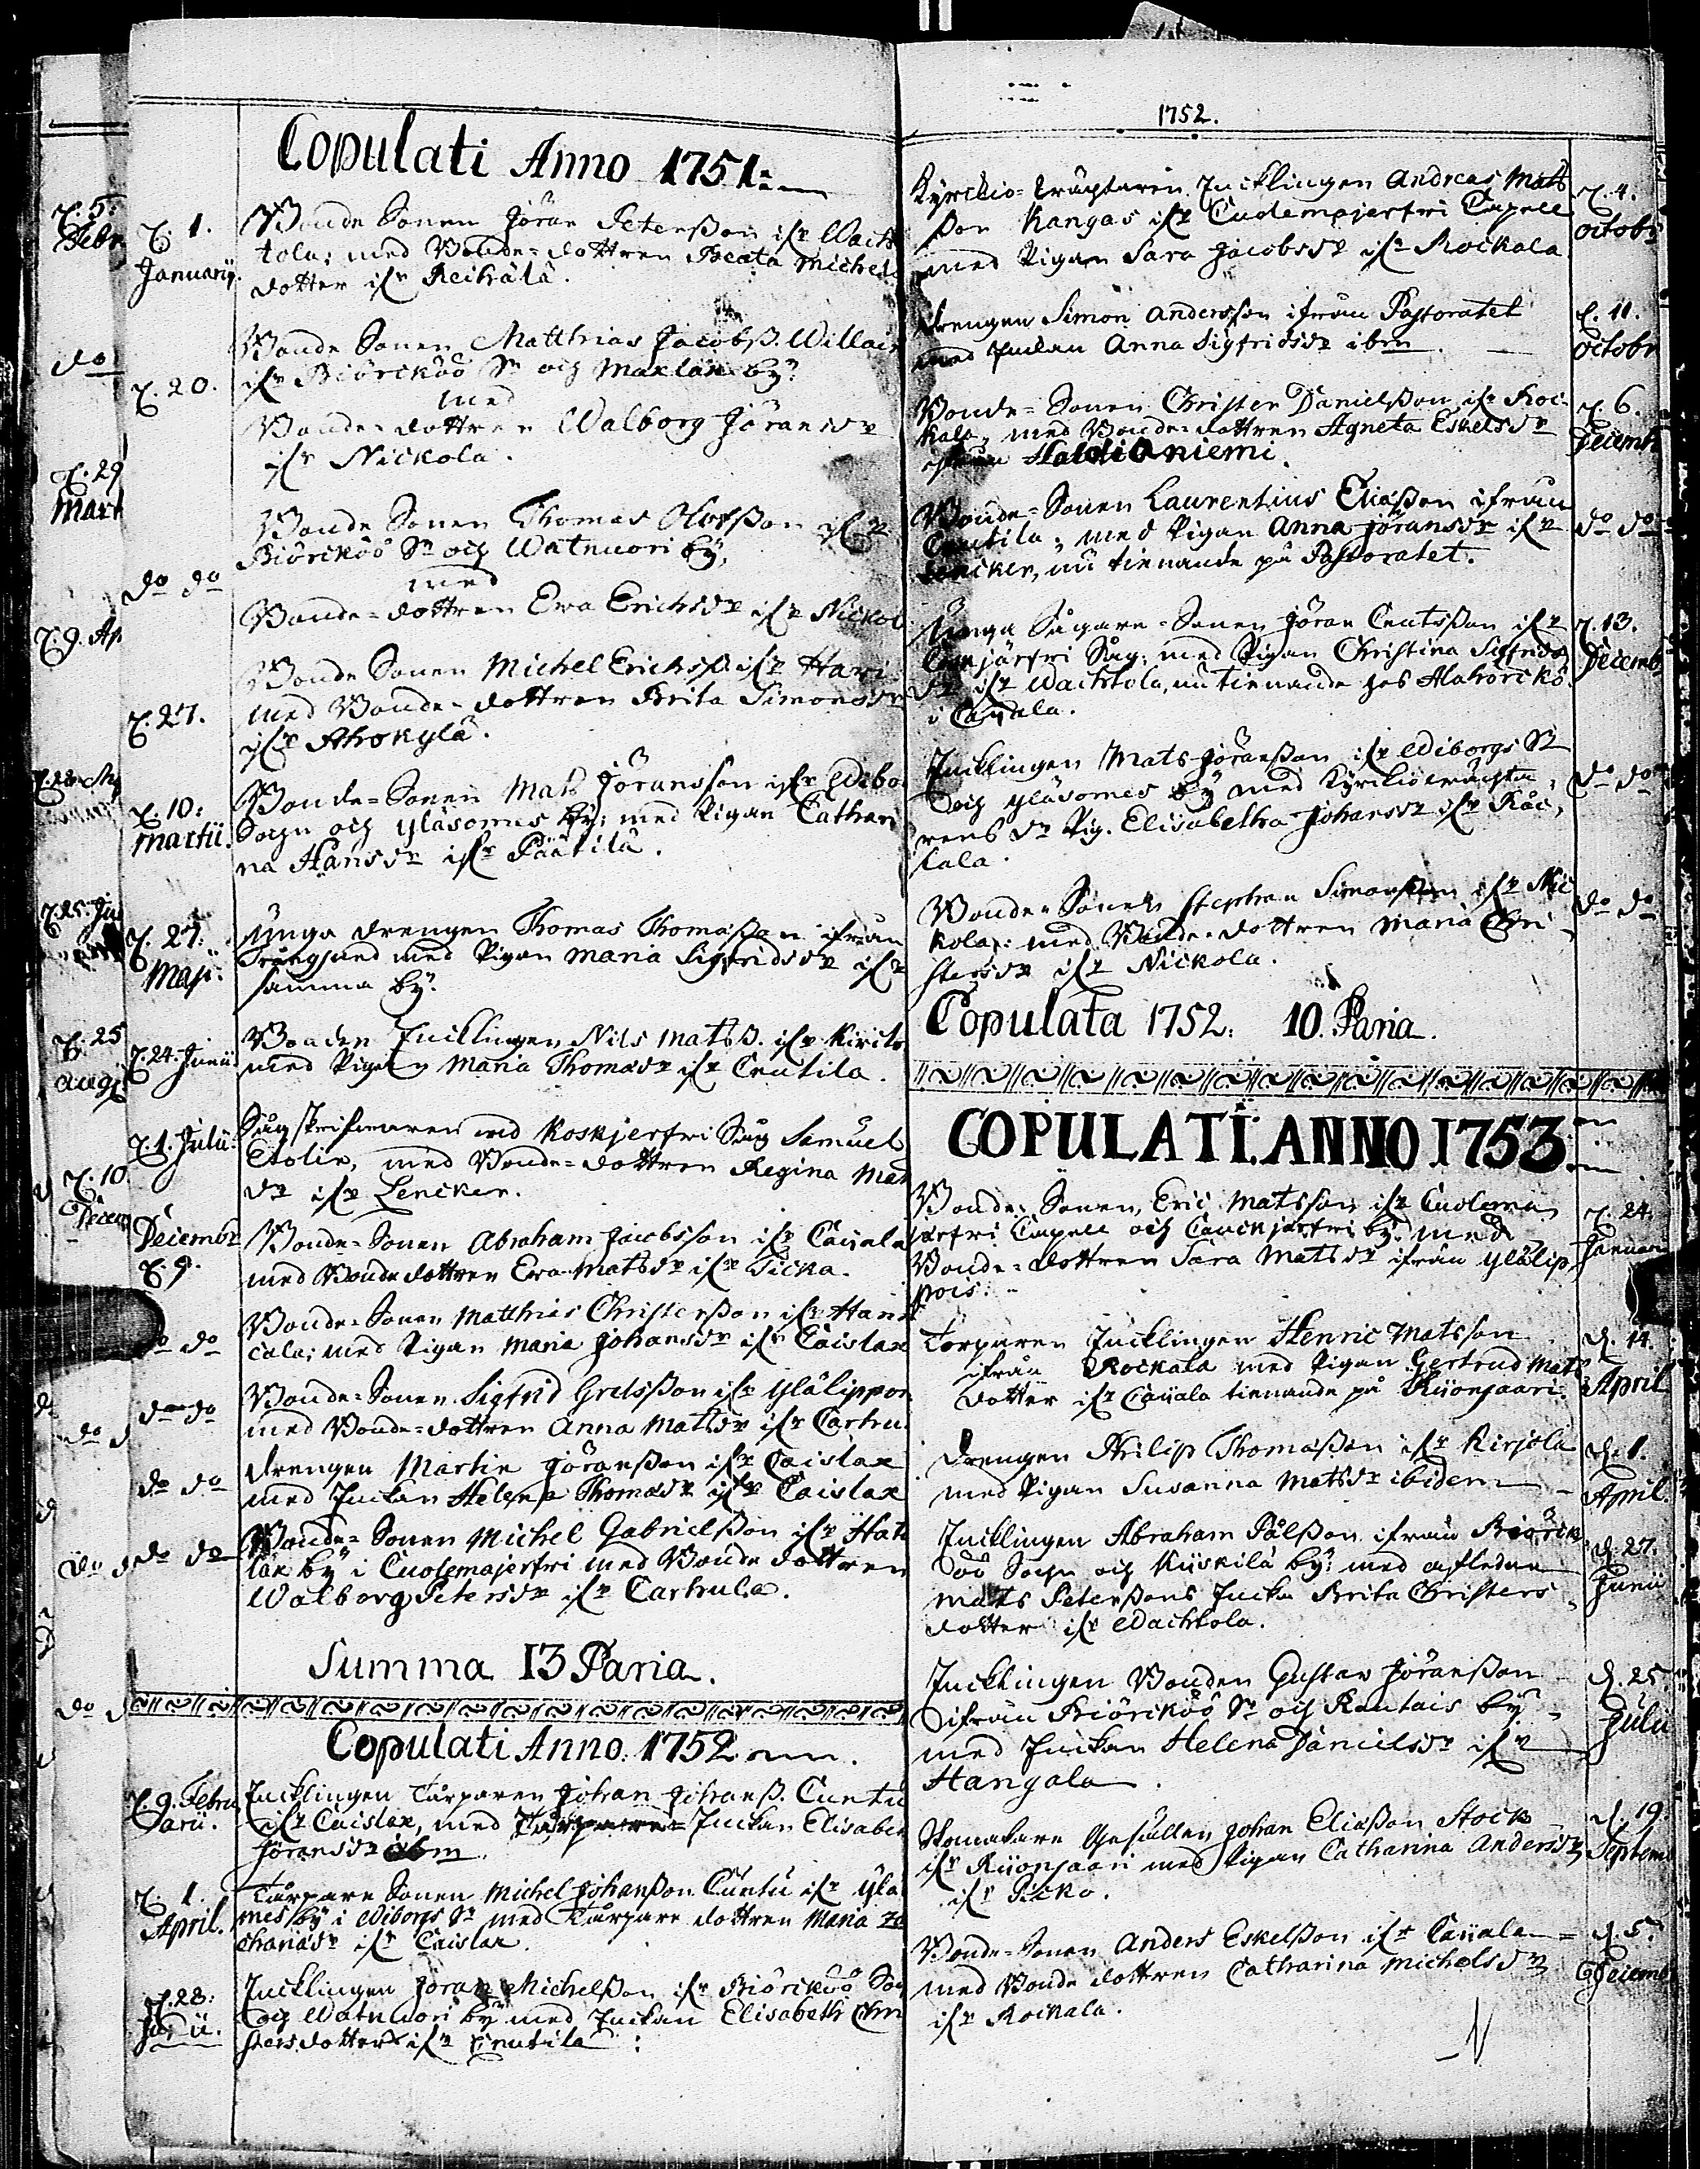 Copulati Anno 1751
d. 1. Januarij. Bonde Sonen Jöran Petersson ifr Wach
tola; med Bonde-dottren Beata Michels
dotter ifr Reihälä.
d. 20. Bonde Sonen Matthias Jacobss. Willain
ifr Biörcköö Sn och Maxlax by:
med
Bonde-dottren Walborg Jöransdr
ifr Nickola.
Bonde Sonen Thomas Olofsson ifr
do do Biörcköö Sn och Watnuori by,
med
Bonde-dottren Ewa Erichsdr ifr Nickol
d. 27. Bonde Sonen Michel Erichss. ifr Hari
med Bonde-dottren Brita Simonsdr
ifr Ahokylä.
d. 10: Martii. Bonde-Sonen Mats Jöransson ifr Wibo
Sogn och Yläsomes by: med Pigan Cathari
na Hansdr ifr Päätilä.
d. 27: Maji. Unga drengen Thomas Thomasson ifrån
Trångsund med Pigan Maria Sigfridsdr ifr
samma by.
d. 24. Junii Bonden Encklingen Nils Matss. ifr Kirito
med Pigan Maria Thomasdr ifr Cnutila.
d. 1. Julii. Såg skrifvaren vid Koskjerfvi Såg Samuel
Etolin, med Bonde-dottren Regina Mats
dr ifr Lencker.
Decembr d. 9. Bonde-Sonen Abraham Jacobsson ifr Caijala
med Bonde dottren Ewa Matsdr ifr Ticka.
do do Bonde-Sonen Matthias Christersson ifr Han
cala; med Pigan Maria Johansdr ifr Caislax
do do Bonde-Sonen Sigfrid Grelsson ifr Ylälippon
med Bonde-dottren Anna Matsdr ifr Carhu
do do drengen Martin Jöransson ifr Caislax
med Enckan Helena Thomasdr ifr Caislax
do do Bonde-Sonen Michel Gabrielsson ifr Hat
lax by i Cuolemajerfvi med Bonde dottren
Walborg Petersdr ifr Carhula.
Summa 13 Paria.
Copulati Anno. 1752
d. 9. Februarii. Encklingen Torparen Johan Johanss. Cuntu
ifr Caislax, med Enckan Elisabet
Jöransdr ibm
d. 1. April. Torpare Sonen Michel Johansson Cuntu ifr Ylä
mes by i Wiborgs Sn med Torpare dottren Maria Za
chariædr ifr Caislax.
d. 28: Encklingen Jöran Michelsson ifr Biörcköö Sog
och Watnuori by med Enckan Elisabeth Chri
stersdotter ifr Cnutila:
1752.
Kyrckio-wächtaren Encklingen Andreas Mats
son Kangas ifr Cuolemajerfvi Capell d. 4. octobr
med Pigan Sara Jacobsdr ifr Rockala
drengen Simon Andersson ifrån Pastoratet d. 11. octobr
med Enckan Anna Sigfridsdr ibm
Bonde-Sonen Christer Danielsson ifr Roc- d. 6. Decembr
kala, med Bonde-dottren Agneta Eskelsdr
ifrån Haldianiemi.
Bonde-Sonen Laurentius Eliasson ifrån
Cnutila, med Pigan Anna Jöransdr ifr do do
Lencker, nu tienande på Pastoratet.
Unga Sågare-Sonen Jöran Cnutsson ifr d. 13. Decembr
järfvi Såg: med Pigan Christina Sigfrids
dr ifr Wachtola, nu tienande hos
i Caijala.
Encklingen Mats Jöransson ifr Wiborgs Sn do do
och Yläsomes by med Kyrckiowächta-
rens dr Pig. Elisabetha Johansdr ifr Råc-
kala.
Bonde-Sonen Stephan Simonsson ifr Nic do do
kola: med Bonde-dottren Maria Chri-
stersdr ifr Nickola.
Copulata 1752: 10. Paria.
COPULATI. ANNO 1753.
Bonde-Sonen, Eric Matsson ifr Cuolema d. 24. Januar
järfvi Capell och Cauckjärfvi by: med
Bonde-dottren Sara Matsdr ifrån Ylälip-
pois.
Torparen Encklingen Henric Matsson d. 14. April
ifrån Rockala med Pigan Gertrud Mats
dotter ifr Caijala tienande på Kiionsaari.
drengen Philip Thomasson ifr Kirjola d. 1. April.
med Pigan Susanna Matsdr ibidem
Encklingen Abraham Pålsson ifrån Biörck
öö Sogn och Kiiskilä by: med afledne d. 27. Junii
Mats Peterssons Encka Brita Christers-
dotter ifr Wachtola.
Encklingen Bonden Gustav Jöransson d. 25 Julii
ifrån Biörcköö Sn och Rautais by
med Enckan Helena Danielsdr ifr
Hangala.
Skomakare Gesällen Johan Eliasson Stock d. 19. Septemb
ifr Kiionsaari med Pigan Catharina Andersdr
ifr Ticka.
Bonde-Sonen Anders Eskelsson ifr Caijala d. 5. Decemb
med Bonde dottren Catharina Michelsdr
ifr Rockala.